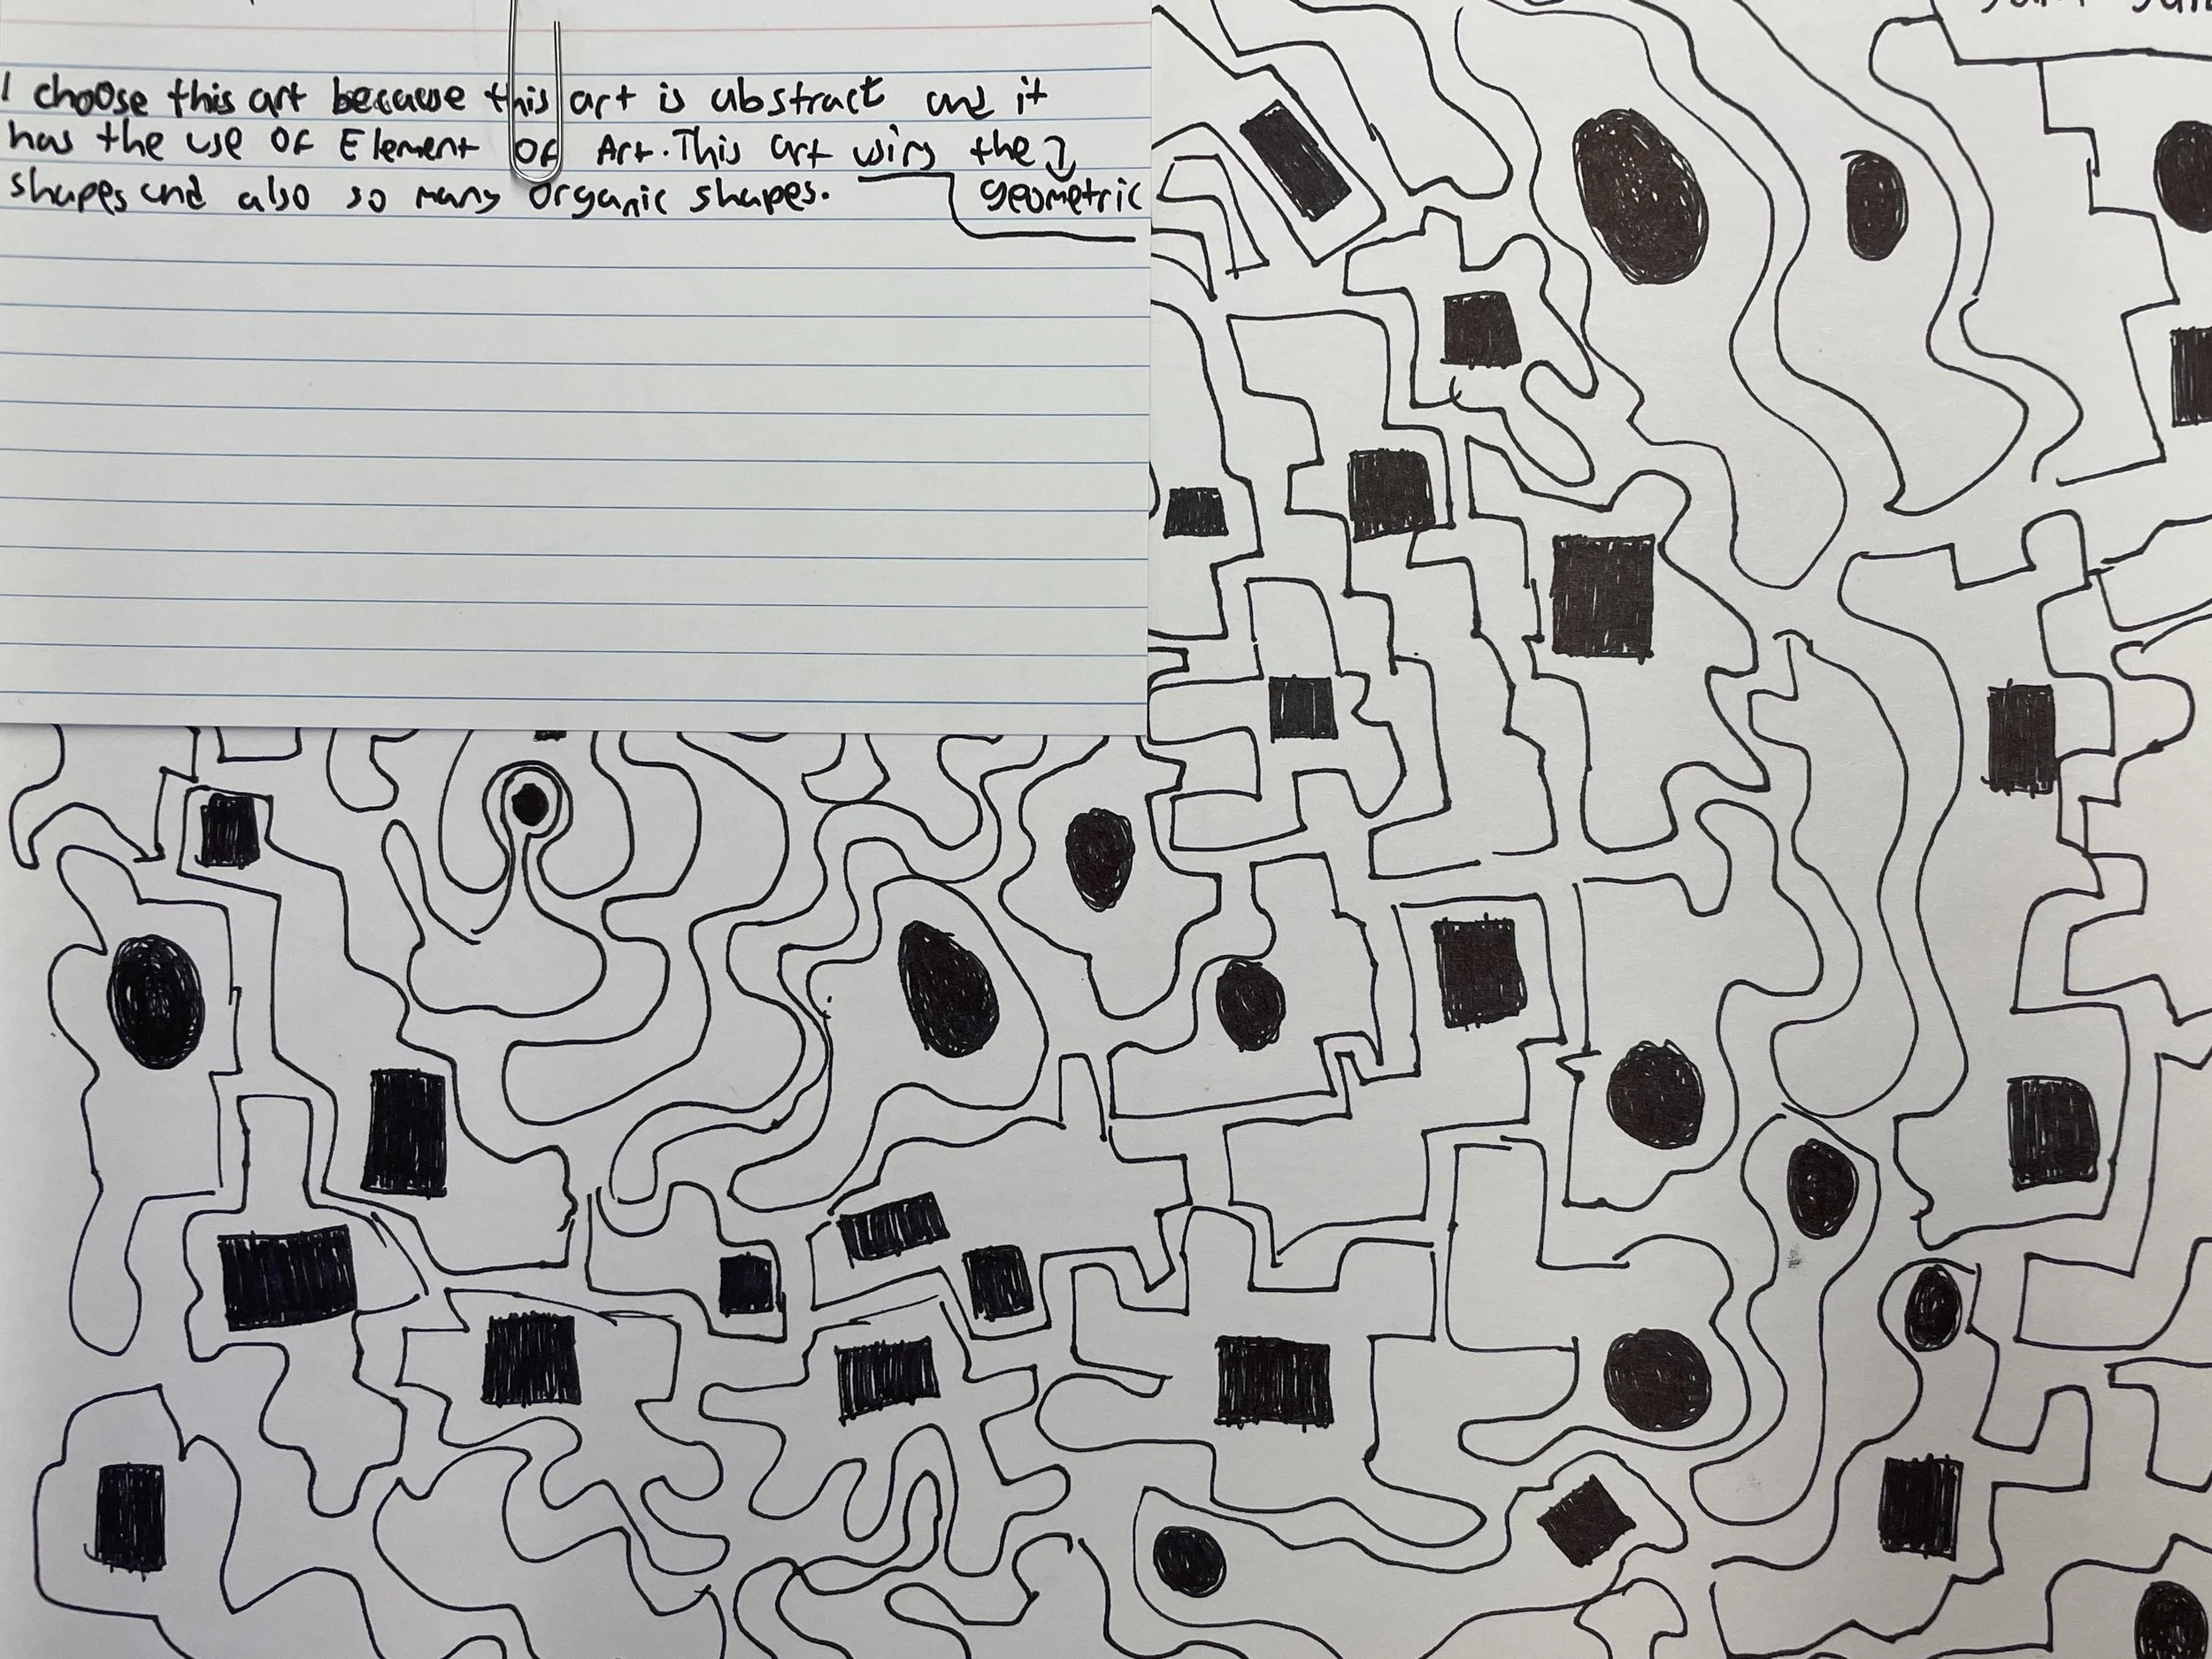 I choose this art because this art is abstract and it
has the use of Element of Art. This art using the
geometric
shapes and also so many organic shapes.